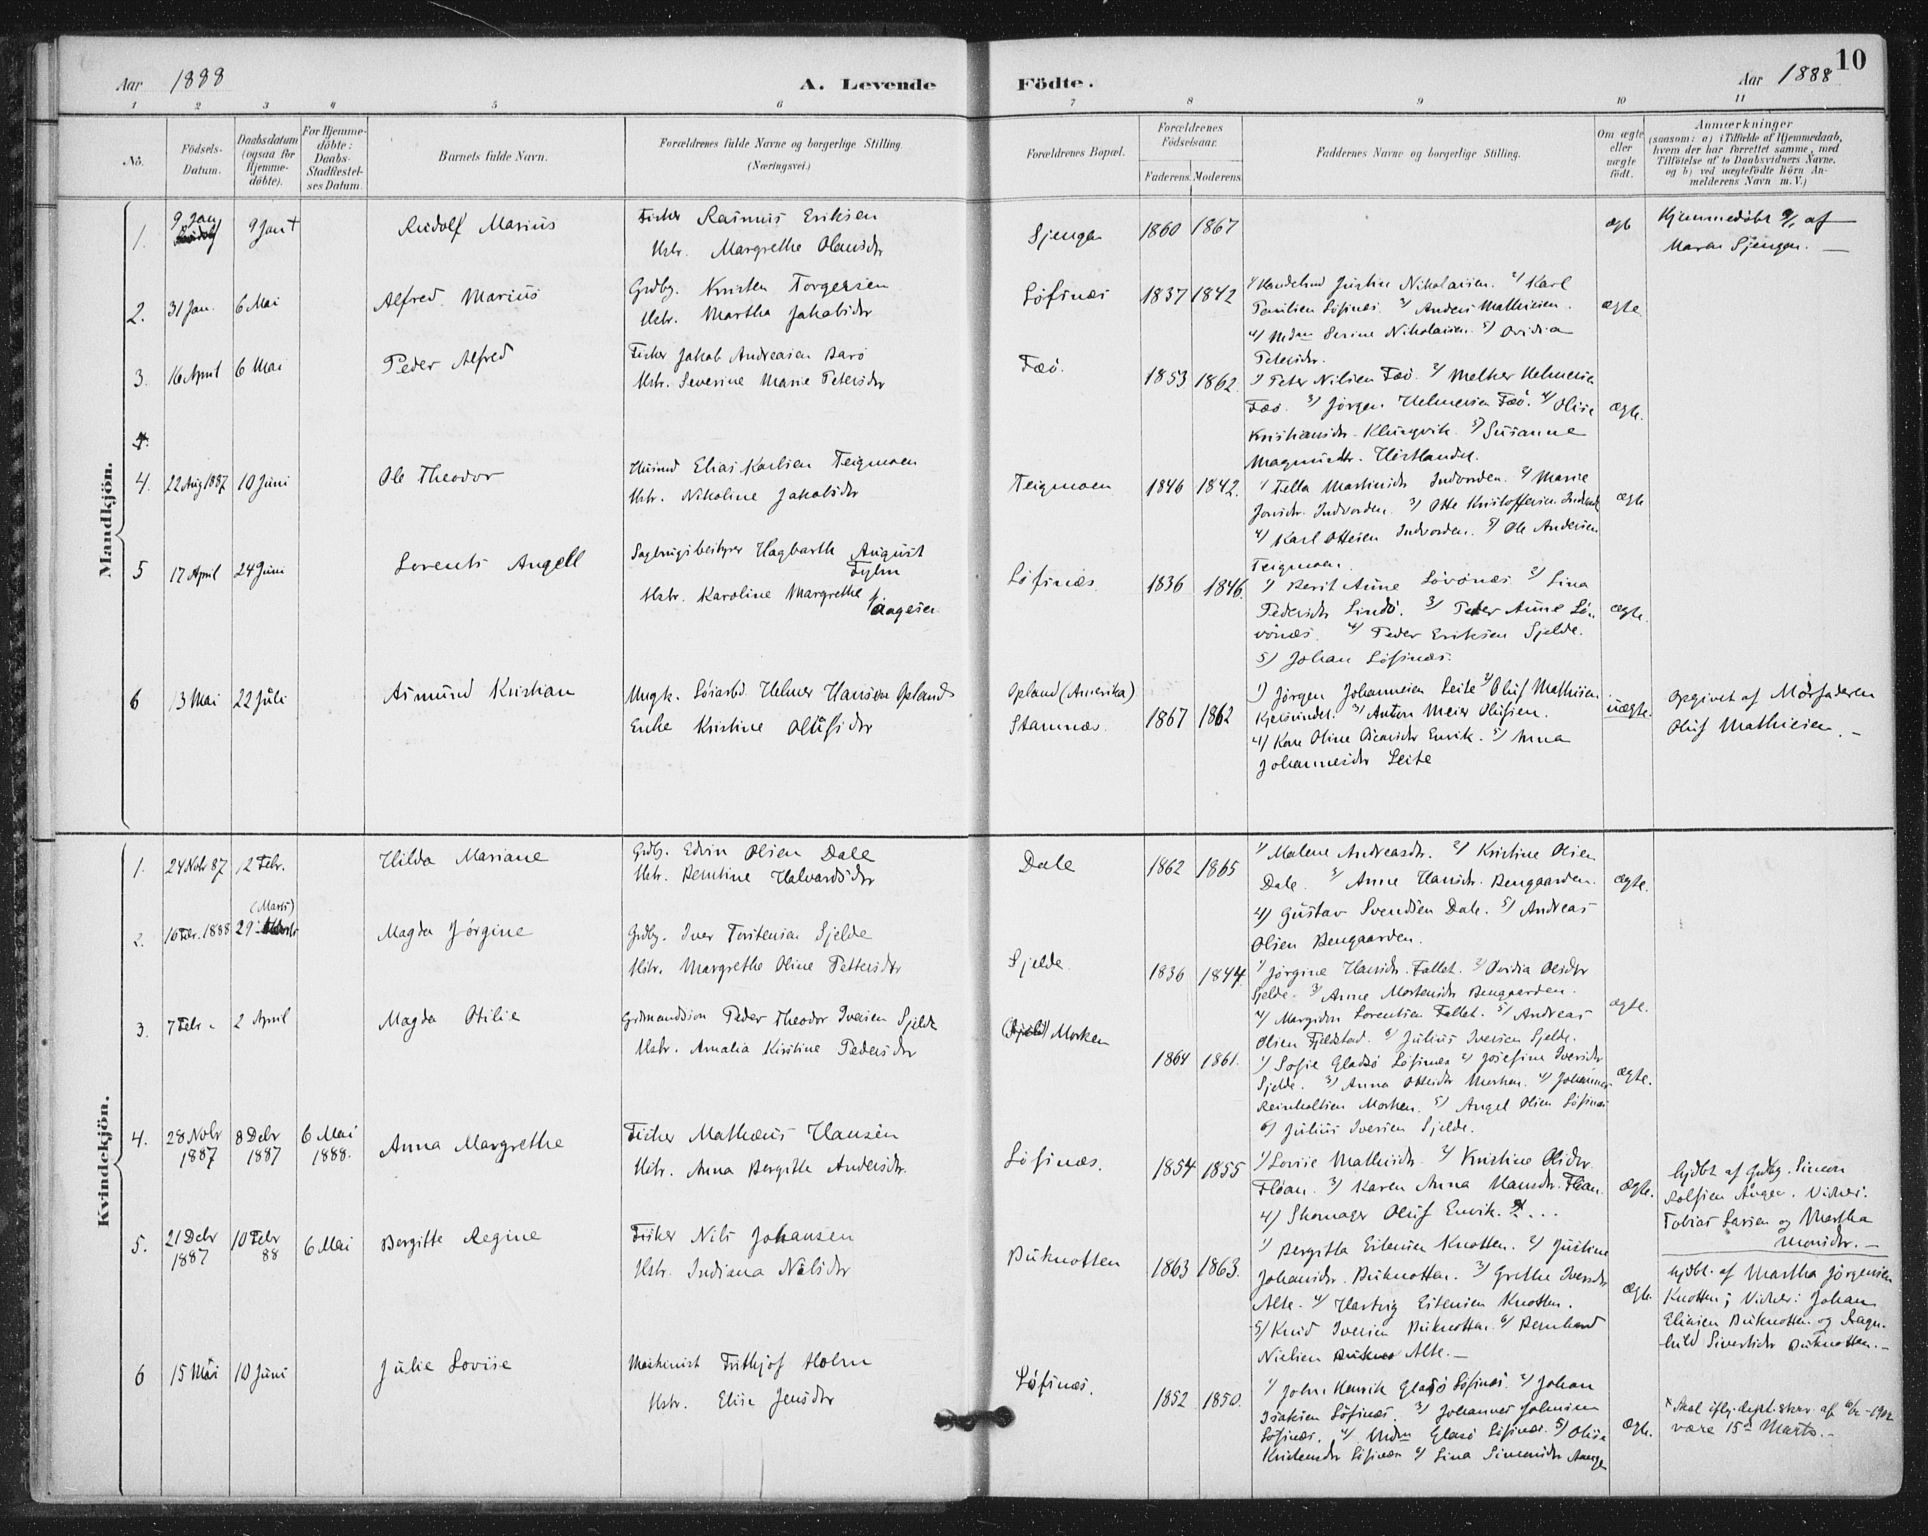 Aar 1888
A. Levende
Födte.
Aar 1888
10
1 2 3 4 5 6 7 8 9 10 11
No.
Födsels-Datum.
Daabsdatum (ogsaa for Hjemme-döbte).
For Hjemme-döbte: Daabs-Stadfæstel-ses Datum.
Barnets fulde Navn.
Forældrenes fulde Navne og borgerlige Stilling. (Næringsvei.)
Forældrenes Bopæl.
Forældrenes Födselsaar.
Faderens. Moderens.
Faddernes Navne og borgerlige Stilling.
Om ægte eller uægte födt.
Anmærkninger
(saasom: a) i Tilfælde af Hjemmedaab,
hvem der har forrettet samme, med
Tilföielse af to Daabsvidners Navne,
og b) ved uægtefödte Börn An-
melderens Navn m. V.)
Mandkjön.
1. 9 Jan 9 Jan + Rudolf Marius
Fisker Rasmus Eriksen
Hstr. Margrethe Olausdtr
Sjengen 1860 1867
ægte
Hjemmedöbt 9/1 af
Maren Sjengen. —
2. 31 Jan. 6 Mai Alfred Marius
Grdbg. Kristen Torgersen
Hstr. Martha Jakobsdtr
Löfsnæs 1837 1842
1) Justine Nikolaisen. 2) Karl
Löfsnæs 3) Anders Mathisen.
4) Serine Nikolaisen 5) Ovidia
Petersdtr.
ægte
3. 16 April 6 Mai Peder Alfred
Fisker Jakob Andreasen Barö
Hstr. Severine Marie Petersdtr
Fæö. 1853 1862.
1) Peter Nilsen Fæö 2) Melker Helmersen
Fæö. 3) Jörgen Helmersen Fæö. 4) Olise
Kristiansdtr. Klungvik. 5) Susanne
Magnusdtr.
ægte.
4. 22 Aug 1887 10 Juni Ole Theodor
Husmd Elias Karlsen Teigmoen
Hstr. Nikoline Jakobsdtr
Teigmoen 1846 1842.
1) Martinsdtr Indvorden. 2) Marie
Jonsdtr. Indvorden. 3) Otte Kristoffersen
4) Karl Ottesen Indvorden. 5) Ole Andersen
Teigmoen.
ægte
5 17 April 24 Juni Lorents Angell
Sagbrugsbestyrer Hagbarth August
Hstr. Karoline Margrethe f.
Aagesen
Löfsnæs. 1836 1846.
1) Berit Aune Lövönæs 2) Lina
Pedersdtr Lindö. 3) Peter Aune Löv-
vönæs. 4) Peder Eriksen Sjelde.
5) Johan Löfsnæs.
ægte.
6 13 Mai 22 Juli Asmund Kristian
Ungk. Helmer Hansen Opland
Enke Kristine Olufsdtr
Opland (Amerika)
Stamnæs. 1867 1862
1) Jörgen Johannesen Leite 2) Oluf Mathisen
3) Anton Meier Olufsen.
4) Envik. 5) Anna
Johannesdtr Leite
uægte.
Opgivet af Morfaderen
Oluf Mathisen. —
Kvindekjön.
1. 24 Novbr 87 12 Febr. Hilda Mariane
Grdbg. Edvin Olsen Dale
Hstr. Berntine Halvardsdtr
Dale 1862 1865
1) Malene Andreasdtr. 2) Kristine Olsen
Dale. 3) Anne Hansdtr. Bengaarden.
4) Gustav Svendsen Dale. 5) Andreas
Olsen Bengaarden.
ægte.
2. 16 Feb. 1888 29 (Marts) Magda Jörgine
Grdbg. Iver Torstensen Sjelde
Hstr. Margrethe Oline Pettersdtr
Sjelde 1836 1844.
1) Jörgine Hansdtr. Fallet. 2) Ovidia Olsdtr
Sjelde. 3) Anne Mortensdtr Bengaarden.
4) Lorentsen Fallet. 5) Andreas
Olsen Fjeldstad. 6) Julius Iversen Sjelde.
ægte.
3. 7 Febr. 2 April Magda Otilie
Grdmandssön Peder Theodor Iversen Sjelde
Hstr. Amalia Kirstine Pedersdtr
Morken 1864 1861.
1) Sofie Glasö Löfsnæs 2) Josefine Iversdtr
Sjelde. 3) Anna Ottesdtr Morken. 4) Johannes
Reinholtsen Morken. 5) Angel Olsen Löfsnæs
6) Julius Iversen Sjelde.
ægte.
4. 28 Novbr 1887 8 Debr 1887 6 Mai 1888. Anna Margrethe
Fisker Mathæus Hansen
Hstr. Anna Bergitte Andersdtr.
Löfsnæs. 1854 1855
1) Lovise Mathisdtr. 2) Kristine Olsdtr
Flöan. 3) Karen Anna Hansdtr. Flöan.
4) Skomager Oluf Envik. 5) ...
ægte.
hjdbt af Grdbg. Simon
Rolfsen Aagen. Vidner:
Tobias Larsen og Martha
Monsdtr. —
5. 21 Debr 1887 10 Febr 88 6 Mai Bergitte Regine
Fisker Nils Johansen
Hstr. Indiana Nilsdtr
Buknotten 1863 1863.
1) Bergitta Estensen Knotten. 2) Justine
Johansdtr. Buknotten. 3) Grethe Iversdtr
Alte. 4) Hartvig Estensen Knotten.
5) Knud Iversen Buknotten. 6) Bernhard
Nielsen Alte. —
ægte.
hjdbt. af Martha Jörgensen
Knotten; Vidner: Johan
Eliasen Buknotten og Ragn-
hild Sivertsdtr Buknotten. —
6 15 Mai 10 Juni Julie Lovise
Maskinist Frithjof Holm
Hstr. Elise Jensdtr
Löfsnæs. 1852 1850.
1) John Henrik Glasö Löfsnæs 2) Johan
Isaksen Löfsnæs. 3) Johannes Johnsen
Löfsnæs. 4) Glasö Löfsnæs 5) Olise
Kristensdtr Löfsnæs 6) Lina Simonsdtr Aangen
ægte.
× Skal iflg. dept. skr. af 6/2 - 1902
være 15de Marts. —